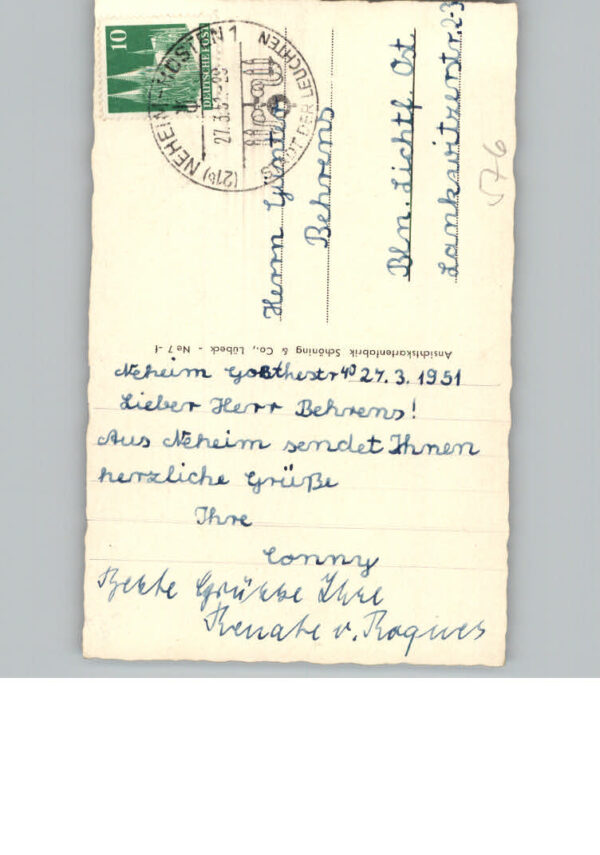 10
DEUTSCHE POST
(21b) NEHEIM-HÜSTEN 1
27.3.51
STADT DER LEUCHTEN
Herrn Günter
Behrens
Bln. Lichtf. Ost.
Lankwitzerstr. 2-3
576
Ansichtskartenfabrik Schöning & Co., Lübeck - Ne 7 f
Neheim Goethestr 40 27. 3. 1951
Lieber Herr Behrens!
Aus Neheim sendet Ihnen
herzliche Grüße
Ihre
Conny
Beste Grüsse Ihre
Renate v. Roques